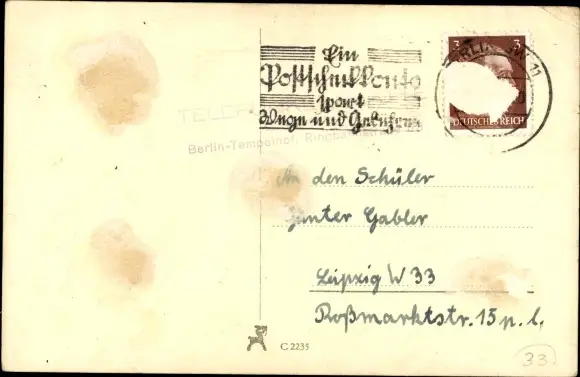 Ein
Postscheckkonto
spart
Wege und Gebühren
3
3
BERLIN
11
DEUTSCHES REICH
Berlin-Tempelhof,
An den Schüler
Günter Gabler
Leipzig W 33
Roßmarktstr. 15 p. l.
C 2235
33